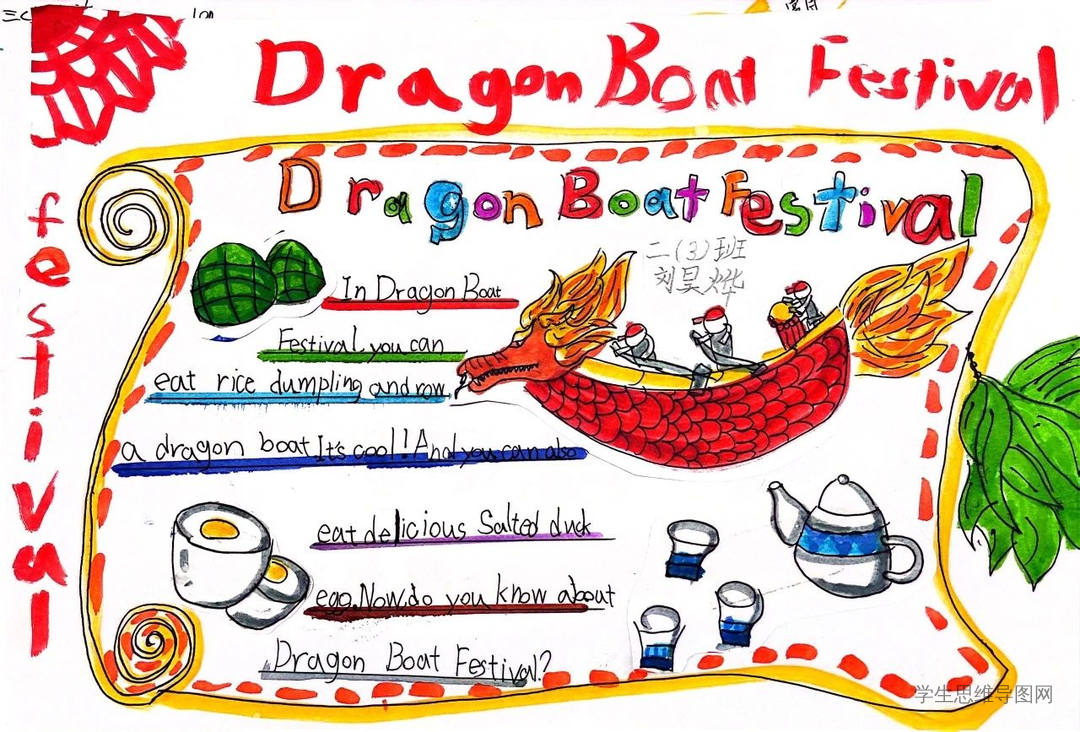 Dragon Boat Festival
festival
Dragon Boat Festival
二(3)班
刘昊烨
In Dragon Boat
Festival, you can
eat rice dumpling and row
a dragon boat It's cool! And you can also
eat delicious Salted duck
egg. Now. do you know about
Dragon Boat Festival?
学生思维导图网